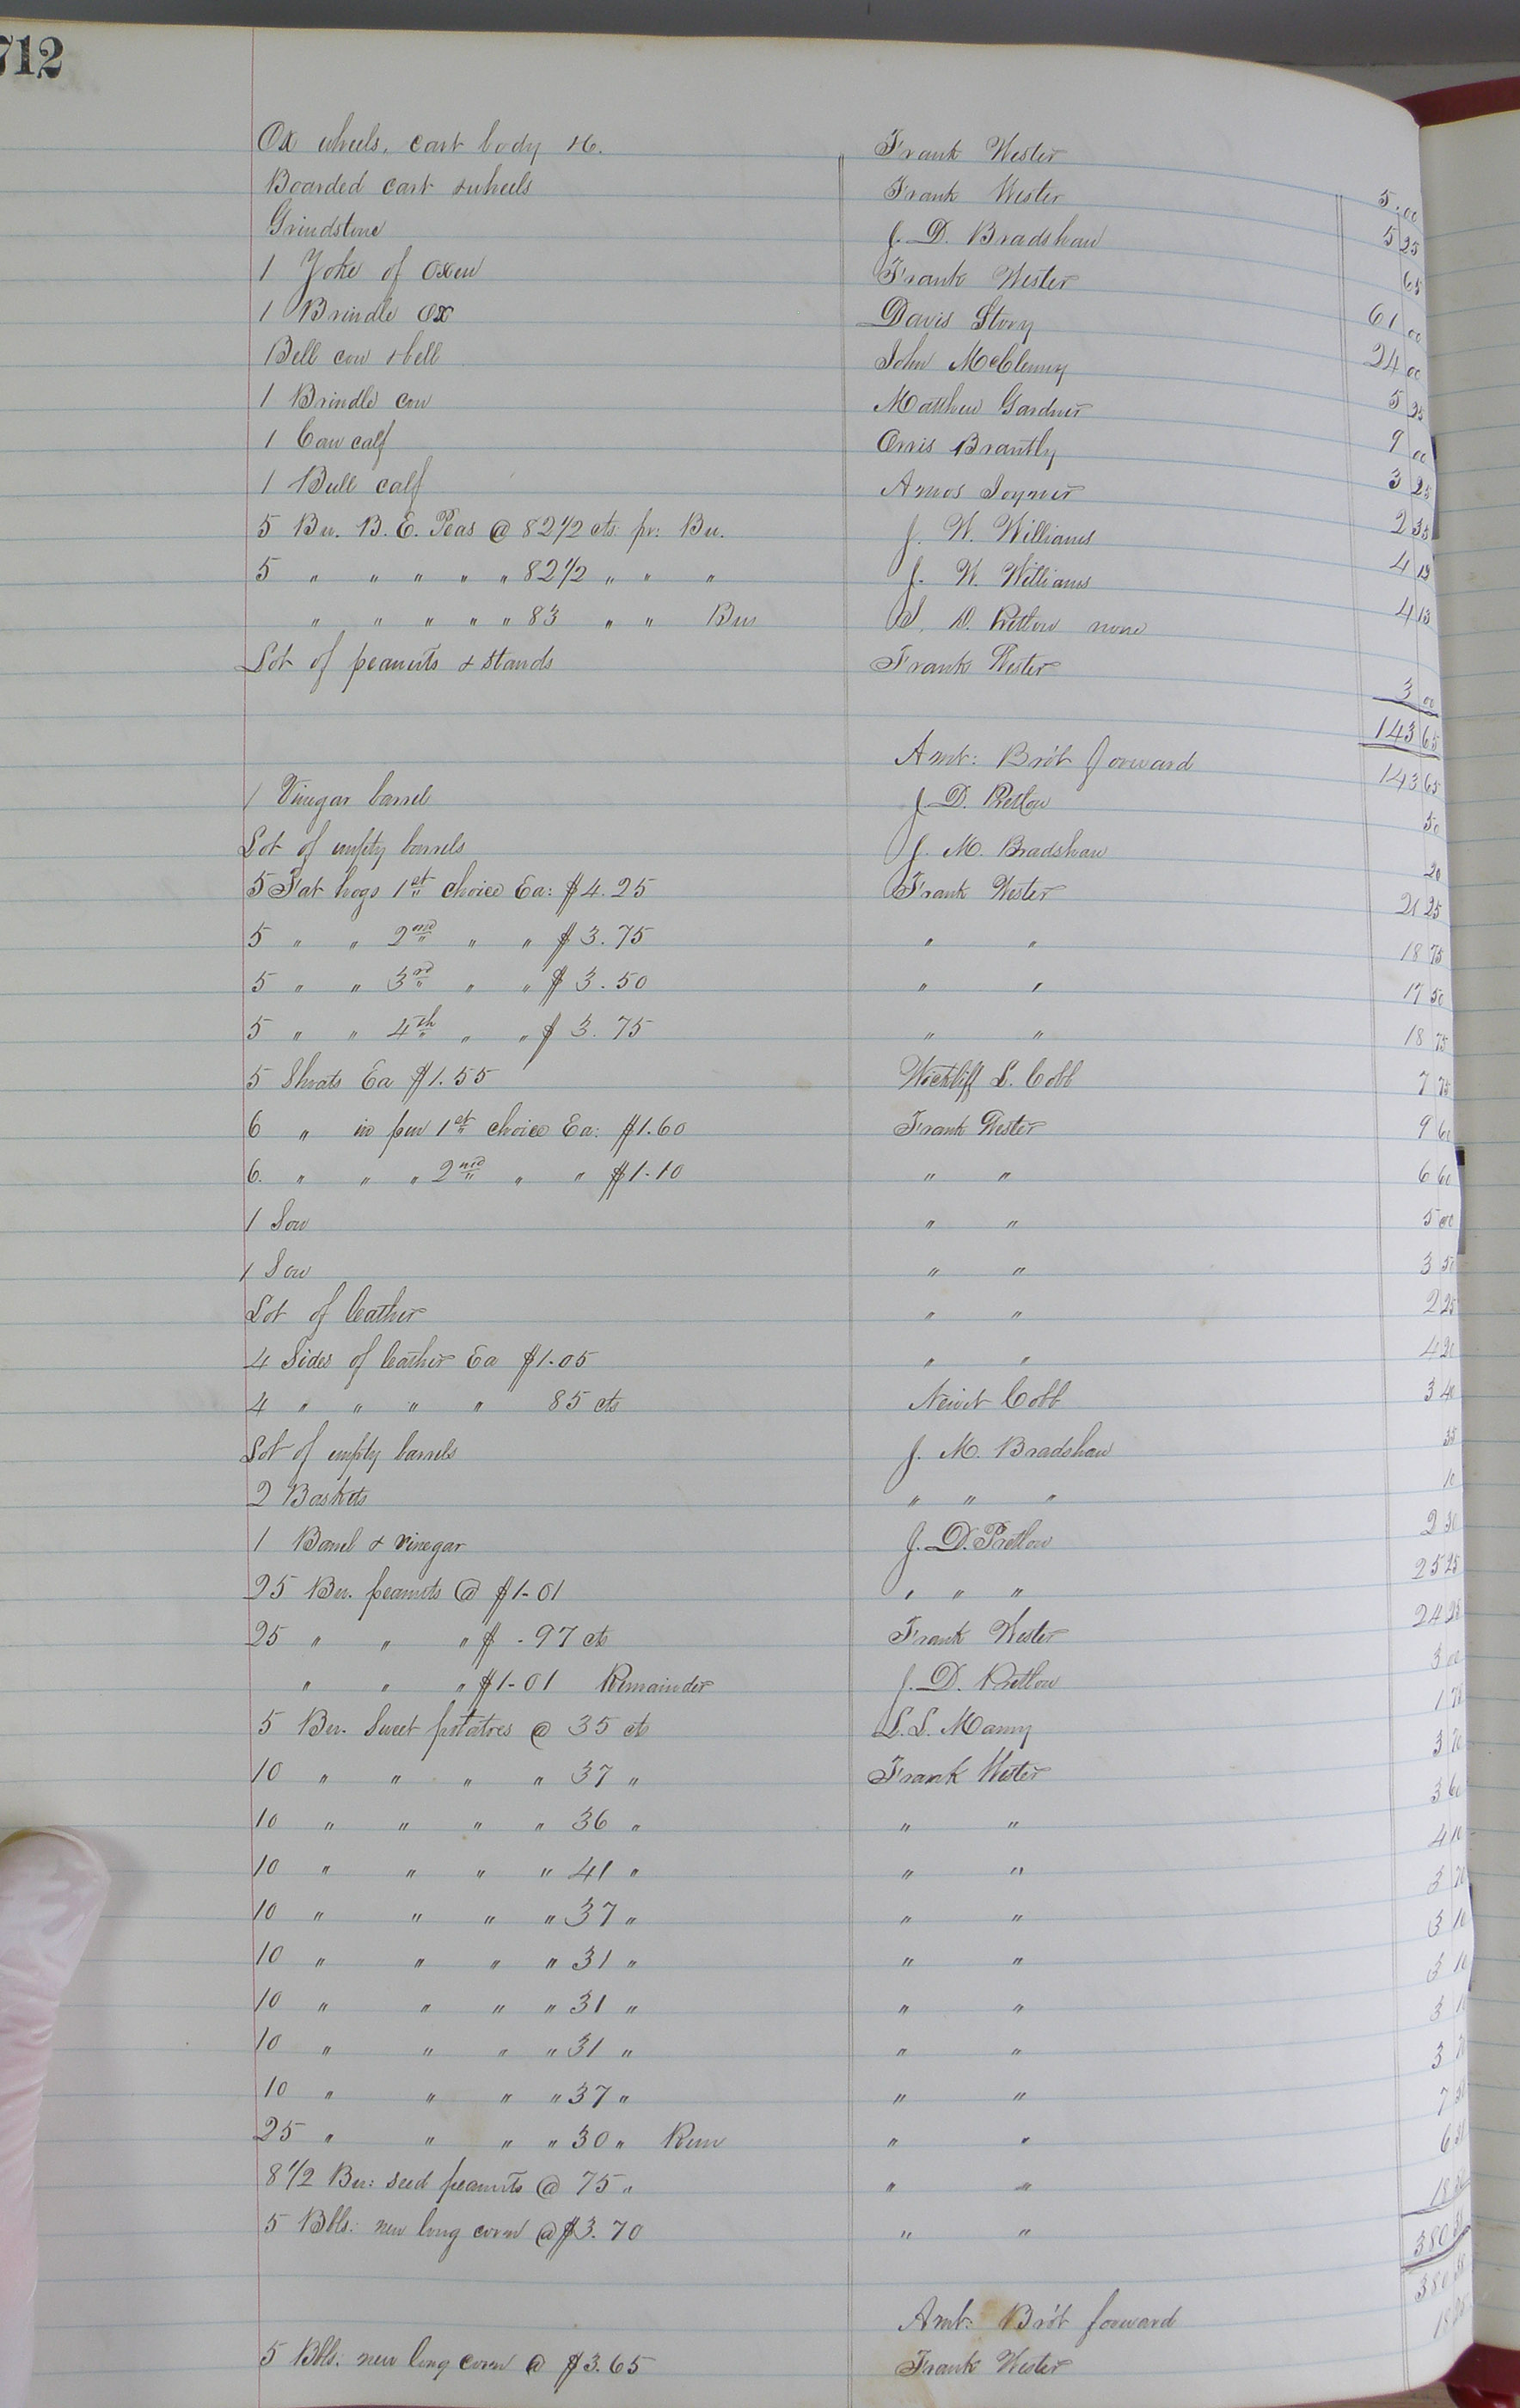 712
Ox wheels, cart body &c. Frank Wester 5.00
Boarded cart & wheels Frank Wester 5 25
Grindstone J. D. Bradshaw 65
1 Yoke of oxen Frank Wester 61 00
1 Brindle ox Davis Story 24 00
Bell cow & bell John McClenny 5 25
1 Brindle cow Matthew Gardner 9 00
1 Cow calf Orris Brantly 3 25
1 Bull calf Amos Joyner 2 35
5 Bu. B. E. Peas @ 82 1/2 cts. pr: Bu. J. W. Williams 4 13
5 " " " " " 82 1/2 " " " J. W. Williams 4 13
" " " " " 83 " " Bus J. D. Pretlow none
Lot of peanuts & stands Frank Wester 3 00
143 65
Amt: Bro't forward 143 65
1 Vinegar barrel J. D. Pretlow 50
Lot of empty barrels J. M. Bradshaw 20
5 Fat hogs 1st choice Ea: $4.25 Frank Wester 21 25
5 " " 2nd " " $3.75 " " 18 75
5 " " 3rd " " $3.50 " " 17 50
5 " " 4th " " $3.75 " " 18 75
5 Shoats Ea $1.55 Wickliff L. Cobb 7 75
6 " in pen 1st choice Ea: $1.60 Frank Wester 9 60
6. " " " 2nd " " $1-10 " " 6 60
1 Sow " " 5 00
1 Sow " " 3 50
Lot of leather " " 2 25
4 Sides of leather Ea $1-05 " " 4 20
4 " " " " 85 cts Newit Cobb 3 40
Lot of empty barrels J. M. Bradshaw 35
2 Baskets " " " 10
1 Barrel & vinegar J. D. Pretlow 2 30
25 Bu. peanuts @ $1-01 " " " 25 25
25 " " " $ -97 cts Frank Wester 24 25
" " " $1-01 Remainder J. D. Pretlow 3 00
5 Bu. Sweet potatoes @ 35 cts L. L. Manry 1 75
10 " " " " 37 " Frank Wester 3 70
10 " " " " 36 " " " 3 60
10 " " " " 41 " " " 4 10
10 " " " " 37 " " " 3 70
10 " " " " 31 " " " 3 10
10 " " " " 31 " " " 3 10
10 " " " " 31 " " " 3 10
10 " " " " 37 " " " 3 70
25 " " " " 30 " Rem " " 7 50
8 1/2 Bu: seed peanuts @ 75 " " " 6 38
5 Bbls: new long corn @ $3.70 " " 18 50
380 38
Amt: Bro't forward 380 38
5 Bbls: new long corn @ $3.65 Frank Wester 18 25